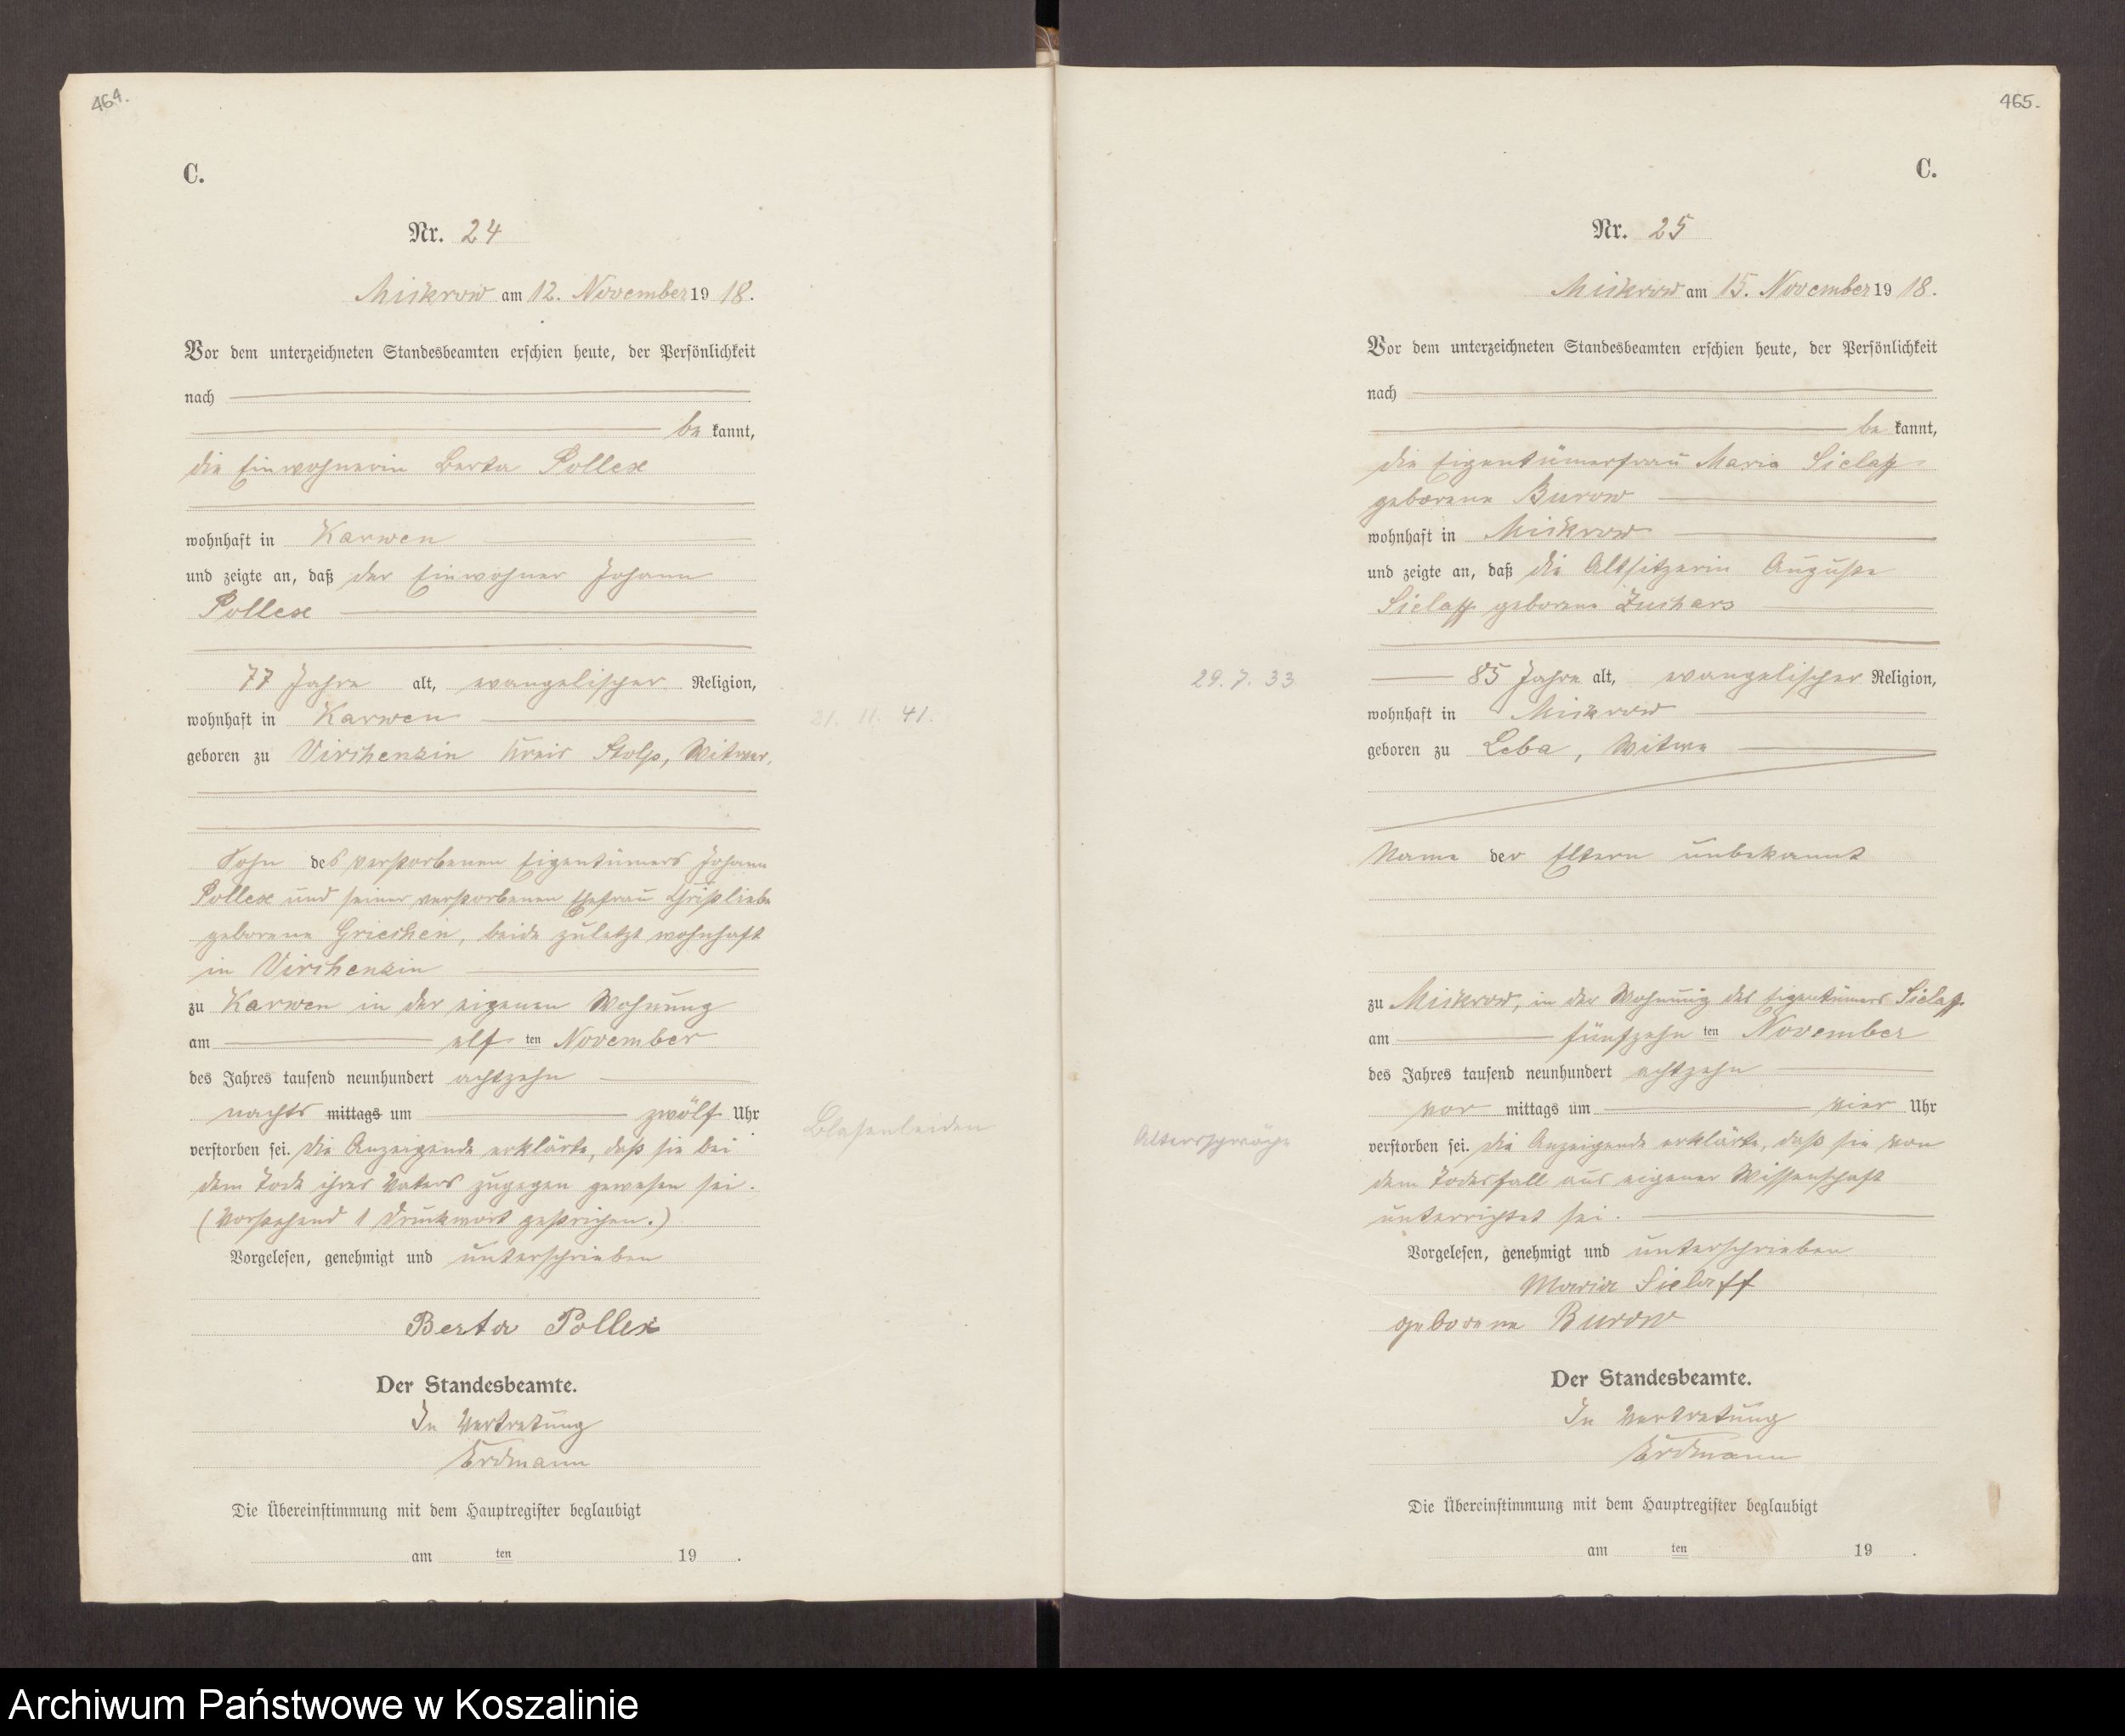 464.
C.
Nr. 24
Mickrow am 12. November 19 18.
Vor dem unterzeichneten Standesbeamten erschien heute, der Persönlichkeit
nach
be kannt,
die Einwohnerin Berta Pollex
wohnhaft in Karwen
und zeigte an, daß der Einwohner Johann
Pollex
77 Jahre alt, evangelischer Religion,
wohnhaft in Karwen
21. 11. 41.
geboren zu Virchenzin Kreis Stolp, Witwer,
Sohn des verstorbenen Eigentümers Johann
Pollex und seiner verstorbenen Ehefrau Christliebe
geborene Griechen, beide zuletzt wohnhaft
in Virchenzin
zu Karwen in der eigenen Wohnung
am elf ten November
des Jahres tausend neunhundert achtzehn
nachts mittags um zwölf Uhr
Blasenleiden
verstorben sei. Die Anzeigende erklärte, daß sie bei
dem Tode ihres Vaters zugegen gewesen sei.
(Vorstehend 1 Druckwort gestrichen.)
Vorgelesen, genehmigt und unterschrieben
Berta Pollex
Der Standesbeamte.
In Vertretung
Erdmann
Die Übereinstimmung mit dem Hauptregister beglaubigt
am ten 19 .
465.
C.
Nr. 25
Mickrow am 15. November 19 18.
Vor dem unterzeichneten Standesbeamten erschien heute, der Persönlichkeit
nach
be kannt,
die Eigentümerfrau Maria Sielaff
geborene Burow
wohnhaft in Mickrow
und zeigte an, daß die Altsitzerin Auguste
Sielaff geborene
29. 7. 33
85 Jahre alt, evangelischer Religion,
wohnhaft in Mickrow
geboren zu Leba, Witwe
Name der Eltern unbekannt
zu Mickrow, in der Wohnung des Eigentümers Sielaff
am fünfzehn ten November
des Jahres tausend neunhundert achtzehn
vor mittags um vier Uhr
Altersschwäche
verstorben sei. Die Anzeigende erklärte, daß sie von
dem Todesfall aus eigener Wissenschaft
unterrichtet sei.
Vorgelesen, genehmigt und unterschrieben
Maria Sielaff
geborene Burow
Der Standesbeamte.
In Vertretung
Erdmann
Die Übereinstimmung mit dem Hauptregister beglaubigt
am ten 19 .
Archiwum Państwowe w Koszalinie